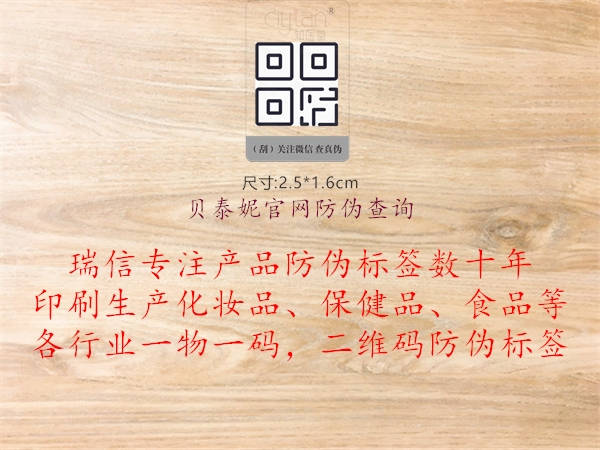 （刮）关注微信 查真伪
尺寸:2.5*1.6cm
贝泰妮官网防伪查询
瑞信专注产品防伪标签数十年
印刷生产化妆品、保健品、食品等
各行业一物一码，二维码防伪标签